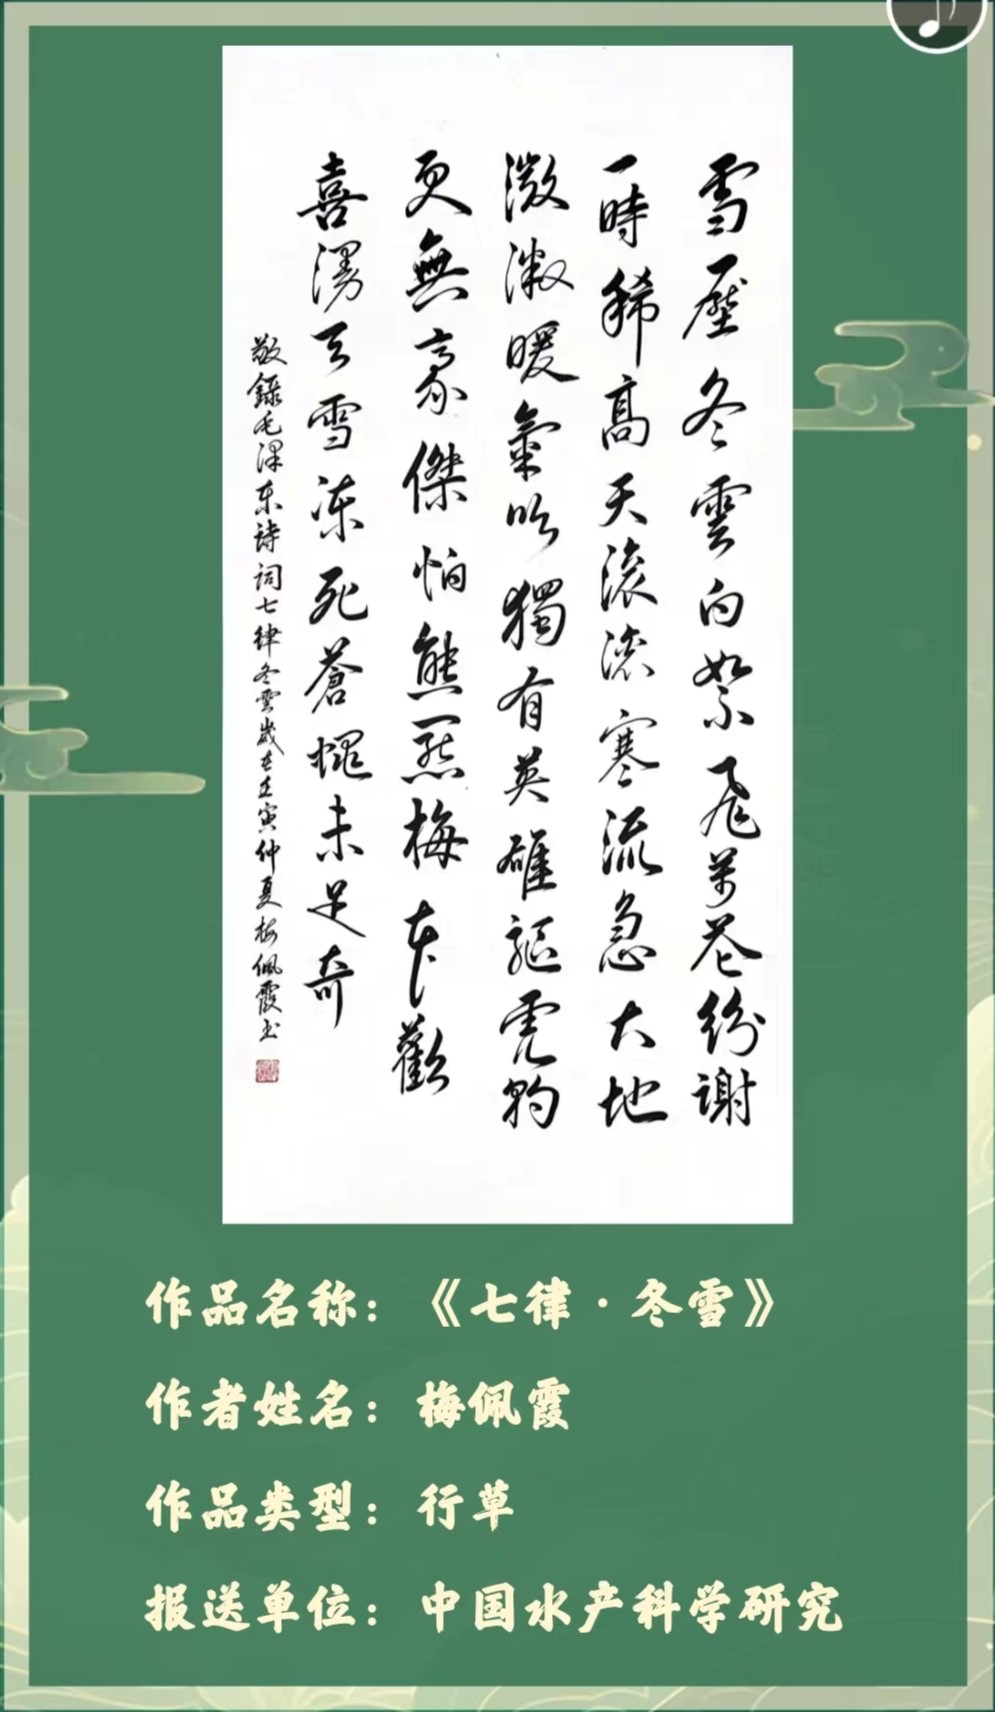 雪壓冬雲白絮飛萬花紛謝
一時稀高天滾滾寒流急大地
微微暖氣吹獨有英雄驅虎豹
更無豪傑怕熊羆梅花歡
喜漫天雪凍死蒼蠅未足奇
敬錄毛澤東詩詞七律冬雲歲在壬寅仲夏梅佩霞書
作品名称：《七律·冬雪》
作者姓名：梅佩霞
作品类型：行草
报送单位：中国水产科学研究